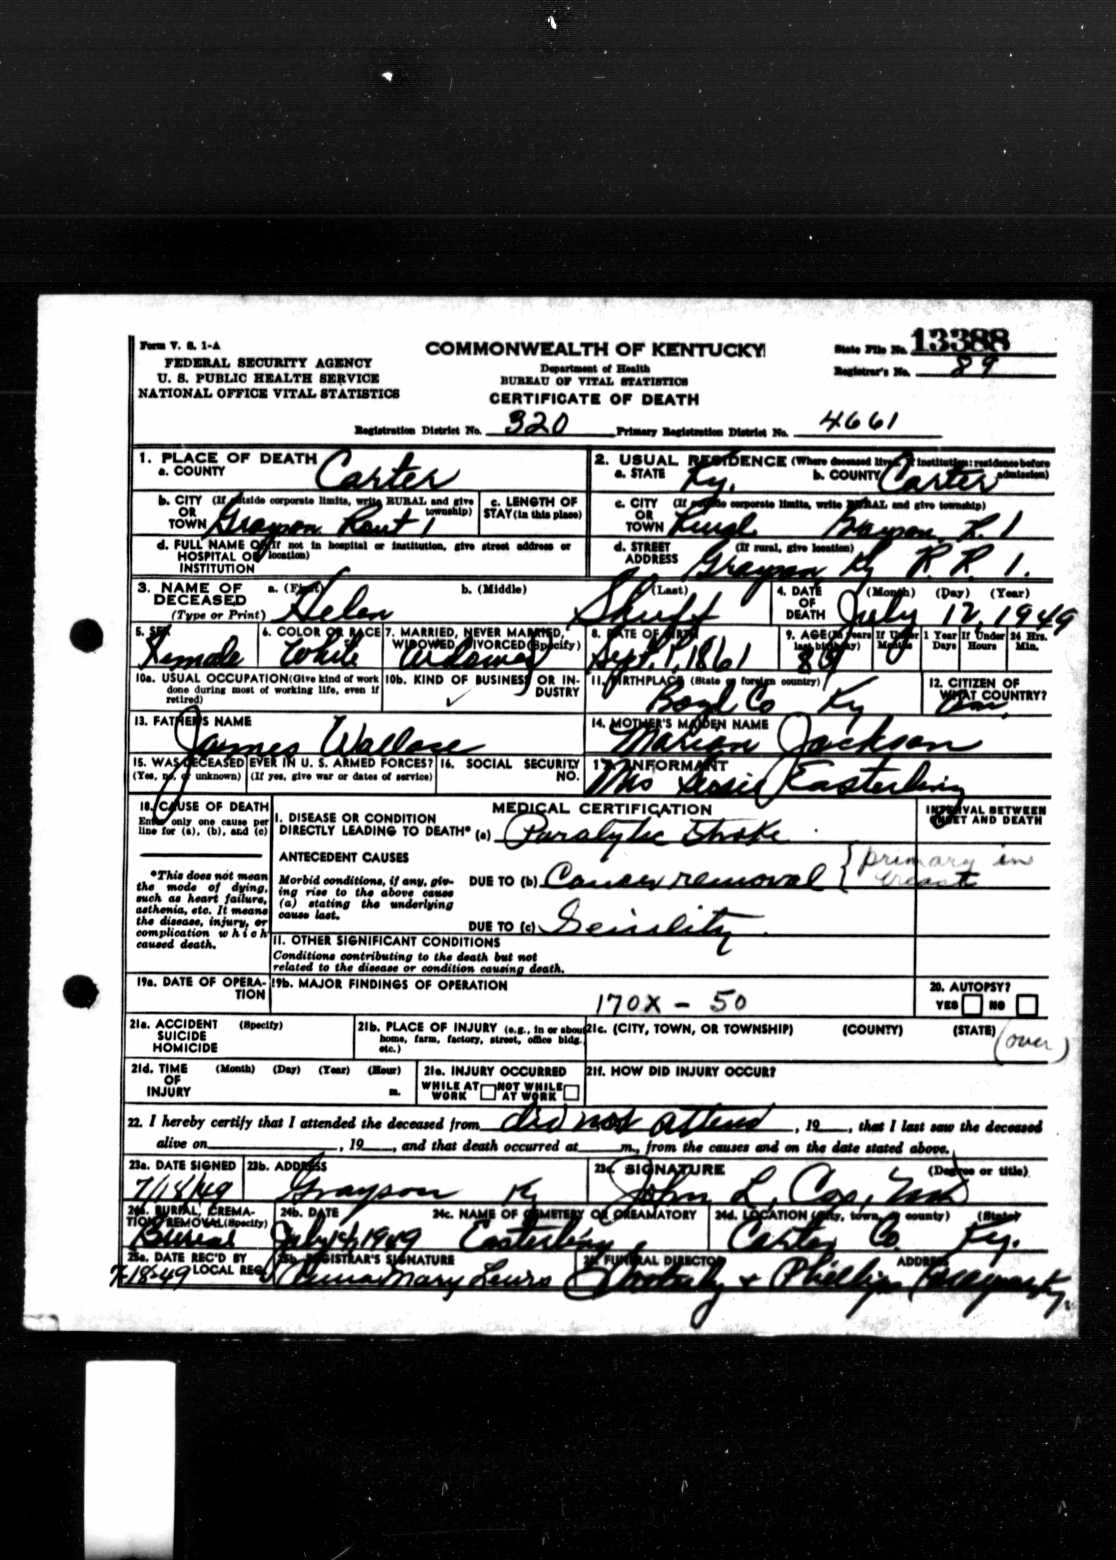 Form V. S. 1-A
FEDERAL SECURITY AGENCY
U. S. PUBLIC HEALTH SERVICE
NATIONAL OFFICE VITAL STATISTICS
COMMONWEALTH OF KENTUCKY
Department of Health
BUREAU OF VITAL STATISTICS
CERTIFICATE OF DEATH
State File No. 13388
Registrar's No. 89
Registration District No. 320 Primary Registration District No. 4661
1. PLACE OF DEATH
a. COUNTY Carter
2. USUAL RESIDENCE (Where deceased lived. If institution: residence before admission)
a. STATE Ky. b. COUNTY Carter
b. CITY (If outside corporate limits, write RURAL and give township)
OR
TOWN Grayson Rout 1
c. LENGTH OF
STAY (in this place)
c. CITY (If outside corporate limits, write RURAL and give township)
OR
TOWN Rural Grayson R. 1
d. FULL NAME OF (If not in hospital or institution, give street address or location)
HOSPITAL OR
INSTITUTION
d. STREET (If rural, give location)
ADDRESS Grayson Ky R. R. 1.
3. NAME OF DECEASED (Type or Print)
a. (First) Helen b. (Middle) (Last) Shuff
4. DATE OF DEATH (Month) (Day) (Year)
July 12, 1949
5. SEX
Female
6. COLOR OR RACE
White
7. MARRIED, NEVER MARRIED,
WIDOWED, DIVORCED (Specify)
Widowed
8. DATE OF BIRTH
Sept. 1, 1861
9. AGE (In years last birthday)
If Under 1 Year
Months Days
If Under 24 Hrs.
Hours Min.
10a. USUAL OCCUPATION (Give kind of work
done during most of working life, even if
retired)
10b. KIND OF BUSINESS OR IN-
DUSTRY
11. BIRTHPLACE (State or foreign country)
Boyd Co Ky
12. CITIZEN OF
WHAT COUNTRY?
13. FATHER'S NAME
James Wallace
14. MOTHER'S MAIDEN NAME
Marion Jackson
15. WAS DECEASED EVER IN U. S. ARMED FORCES?
(Yes, no, or unknown) (If yes, give war or dates of service)
16. SOCIAL SECURITY
NO.
17. INFORMANT
Mrs Easterling
18. CAUSE OF DEATH
Enter only one cause per
line for (a), (b), and (c)
*This does not mean
the mode of dying,
such as heart failure,
asthenia, etc. It means
the disease, injury, or
complication which
caused death.
MEDICAL CERTIFICATION
INTERVAL BETWEEN
ONSET AND DEATH
I. DISEASE OR CONDITION
DIRECTLY LEADING TO DEATH* (a) Paralytic Stroke
ANTECEDENT CAUSES
Morbid conditions, if any, giv-
ing rise to the above cause
(a) stating the underlying
cause last.
DUE TO (b) Cancer removal { primary in
breast
DUE TO (c) Seinlity
II. OTHER SIGNIFICANT CONDITIONS
Conditions contributing to the death but not
related to the disease or condition causing death.
19a. DATE OF OPERA-
TION
19b. MAJOR FINDINGS OF OPERATION
170X - 50
20. AUTOPSY?
YES NO
21a. ACCIDENT (Specify)
SUICIDE
HOMICIDE
21b. PLACE OF INJURY (e.g., in or about
home, farm, factory, street, office bldg.
etc.)
21c. (CITY, TOWN, OR TOWNSHIP) (COUNTY) (STATE)
(over)
21d. TIME (Month) (Day) (Year) (Hour)
OF
INJURY m.
21e. INJURY OCCURRED
WHILE AT WORK NOT WHILE AT WORK
21f. HOW DID INJURY OCCUR?
22. I hereby certify that I attended the deceased from did not attend, 19__, that I last saw the deceased
alive on____, 19__, and that death occurred at____m., from the causes and on the date stated above.
23a. DATE SIGNED
7/18/49
23b. ADDRESS
Grayson Ky
23c. SIGNATURE (Degree or title)
John L. Cox, MD
24a. BURIAL, CREMA-
TION, REMOVAL (Specify)
Burial
24b. DATE
July 14, 1949
24c. NAME OF CEMETERY OR CREAMATORY
Easterling
24d. LOCATION (City, town, or county) (State)
Carter Co Ky.
25a. DATE REC'D BY
LOCAL REG.
7-18-49
25b. REGISTRAR'S SIGNATURE
Mary Lewis
26. FUNERAL DIRECTOR ADDRESS